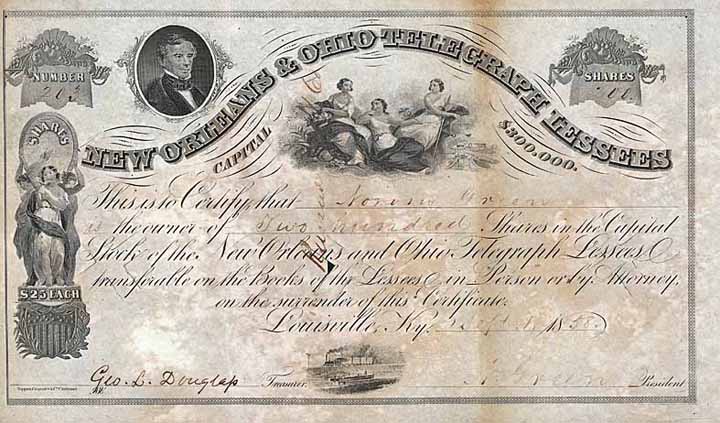 NUMBER
203
NEW ORLEANS & OHIO TELEGRAPH LESSEES
SHARES
200
CAPITAL $300.000.
SHARES
$25 EACH
This is to Certify, that Norvin Green
is the owner of Two hundred Shares in the Capital
Stock of the New Orleans and Ohio Telegraph Lessees
transferable on the Books of the Lessees in Person or by Attorney,
on the surrender of this Certificate.
Louisville, Ky. 185
Geo. L. Douglass Treasurer. President